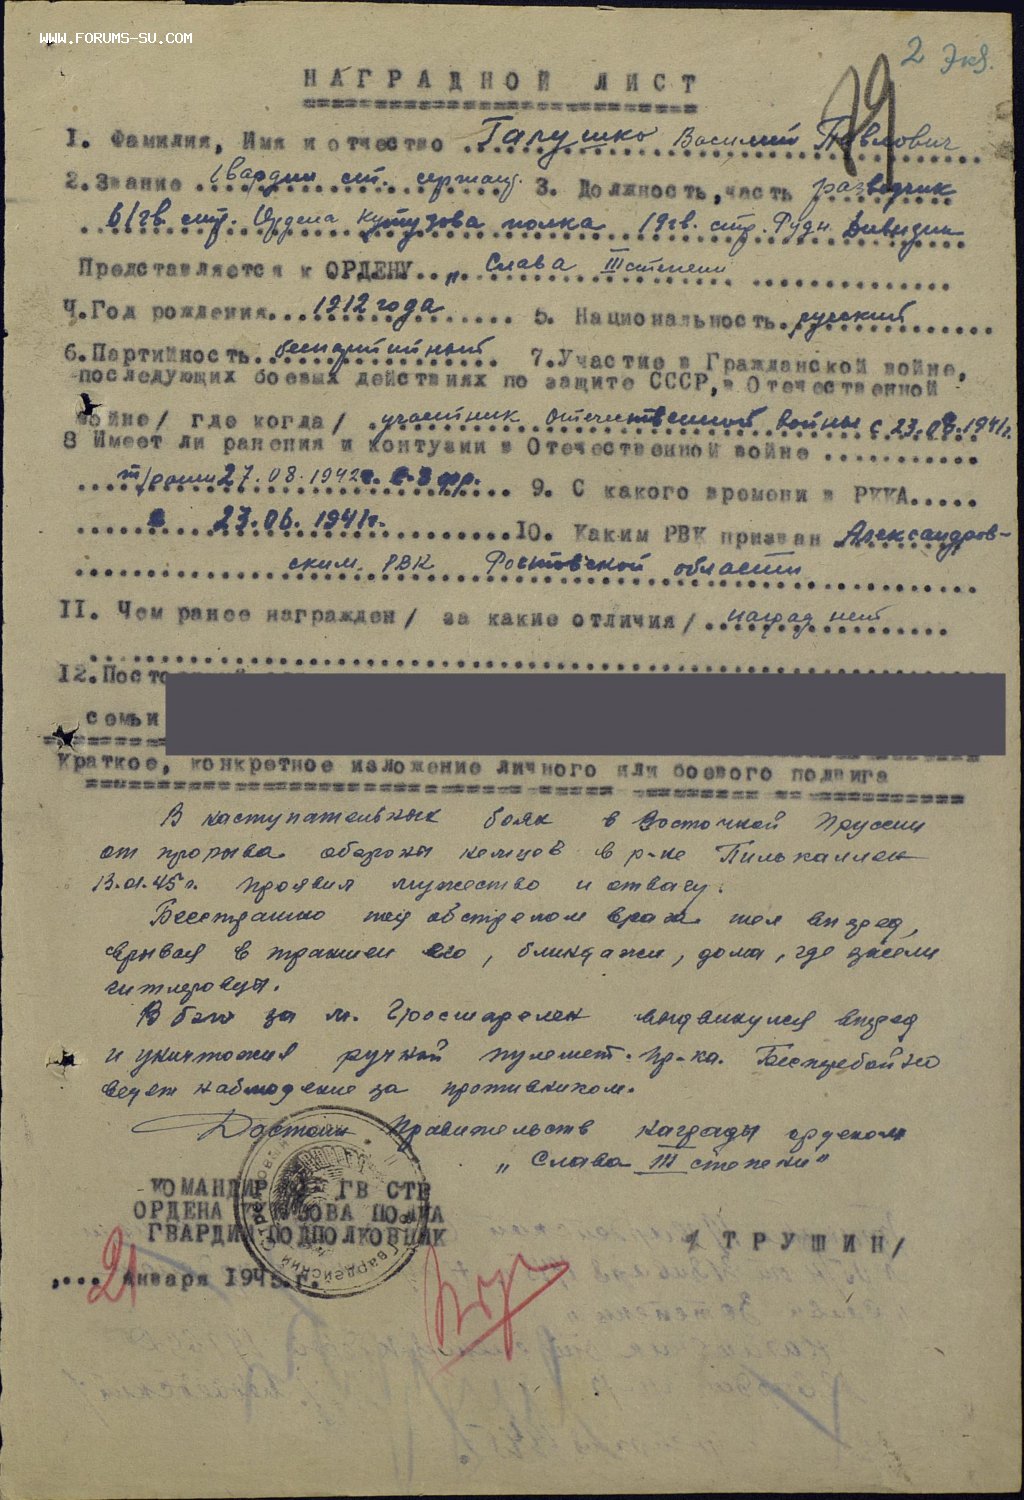 WWW.FORUMS-SU.COM
2 экз.
НАГРАДНОЙ ЛИСТ
1. Фамилия, Имя и отчество Галушко Василий Павлович
2. Звание гвардии ст. сержант 3. Должность, часть разведчик
61 гв. стр. Ордена Кутузова полка 19 гв. стр. Рудн. Дивизии
Представляется к ОРДЕНУ „Слава III степени
4. Год рождения 1912 года 5. Национальность русский
6. Партийность беспартийный 7. Участие в Гражданской войне,
последующих боевых действиях по защите СССР, в Отечественной
войне / где когда / участник отечественной войны с 23.06.1941г.
8 Имеет ли ранения и контузии в Отечественной войне
т/ранен 27.08.1942г. 9. С какого времени в РККА
с 23.06.1941г. 10. Каким РВК призван Александров-
ским РВК Ростовской области
11. Чем ранее награжден / за какие отличия / наград нет
12.
семьи
Краткое, конкретное изложение личного или боевого подвига
В наступательных боях в Восточной Пруссии
от прорыва обороны немцев в р-не Пилькаллен
13.01.45г. проявил мужество и отвагу.
Бесстрашно под обстрелом врага шел вперед,
врывая в траншеи его, блиндажи, дома, где засели
гитлеровцы.
В бою за м. выдвинулся вперед
и уничтожил ручной пулемет пр-ка. Бесперебойно
ведет наблюдение за противником.
Достоин Правительств награды орденом
„Слава III степени"
КОМАНДИР ГВ СТР
ОРДЕНА КУТУЗОВА ПОЛКА
ГВАРДИИ ПОДПОЛКОВНИК
/ТРУШИН/
21 января 1945 г.